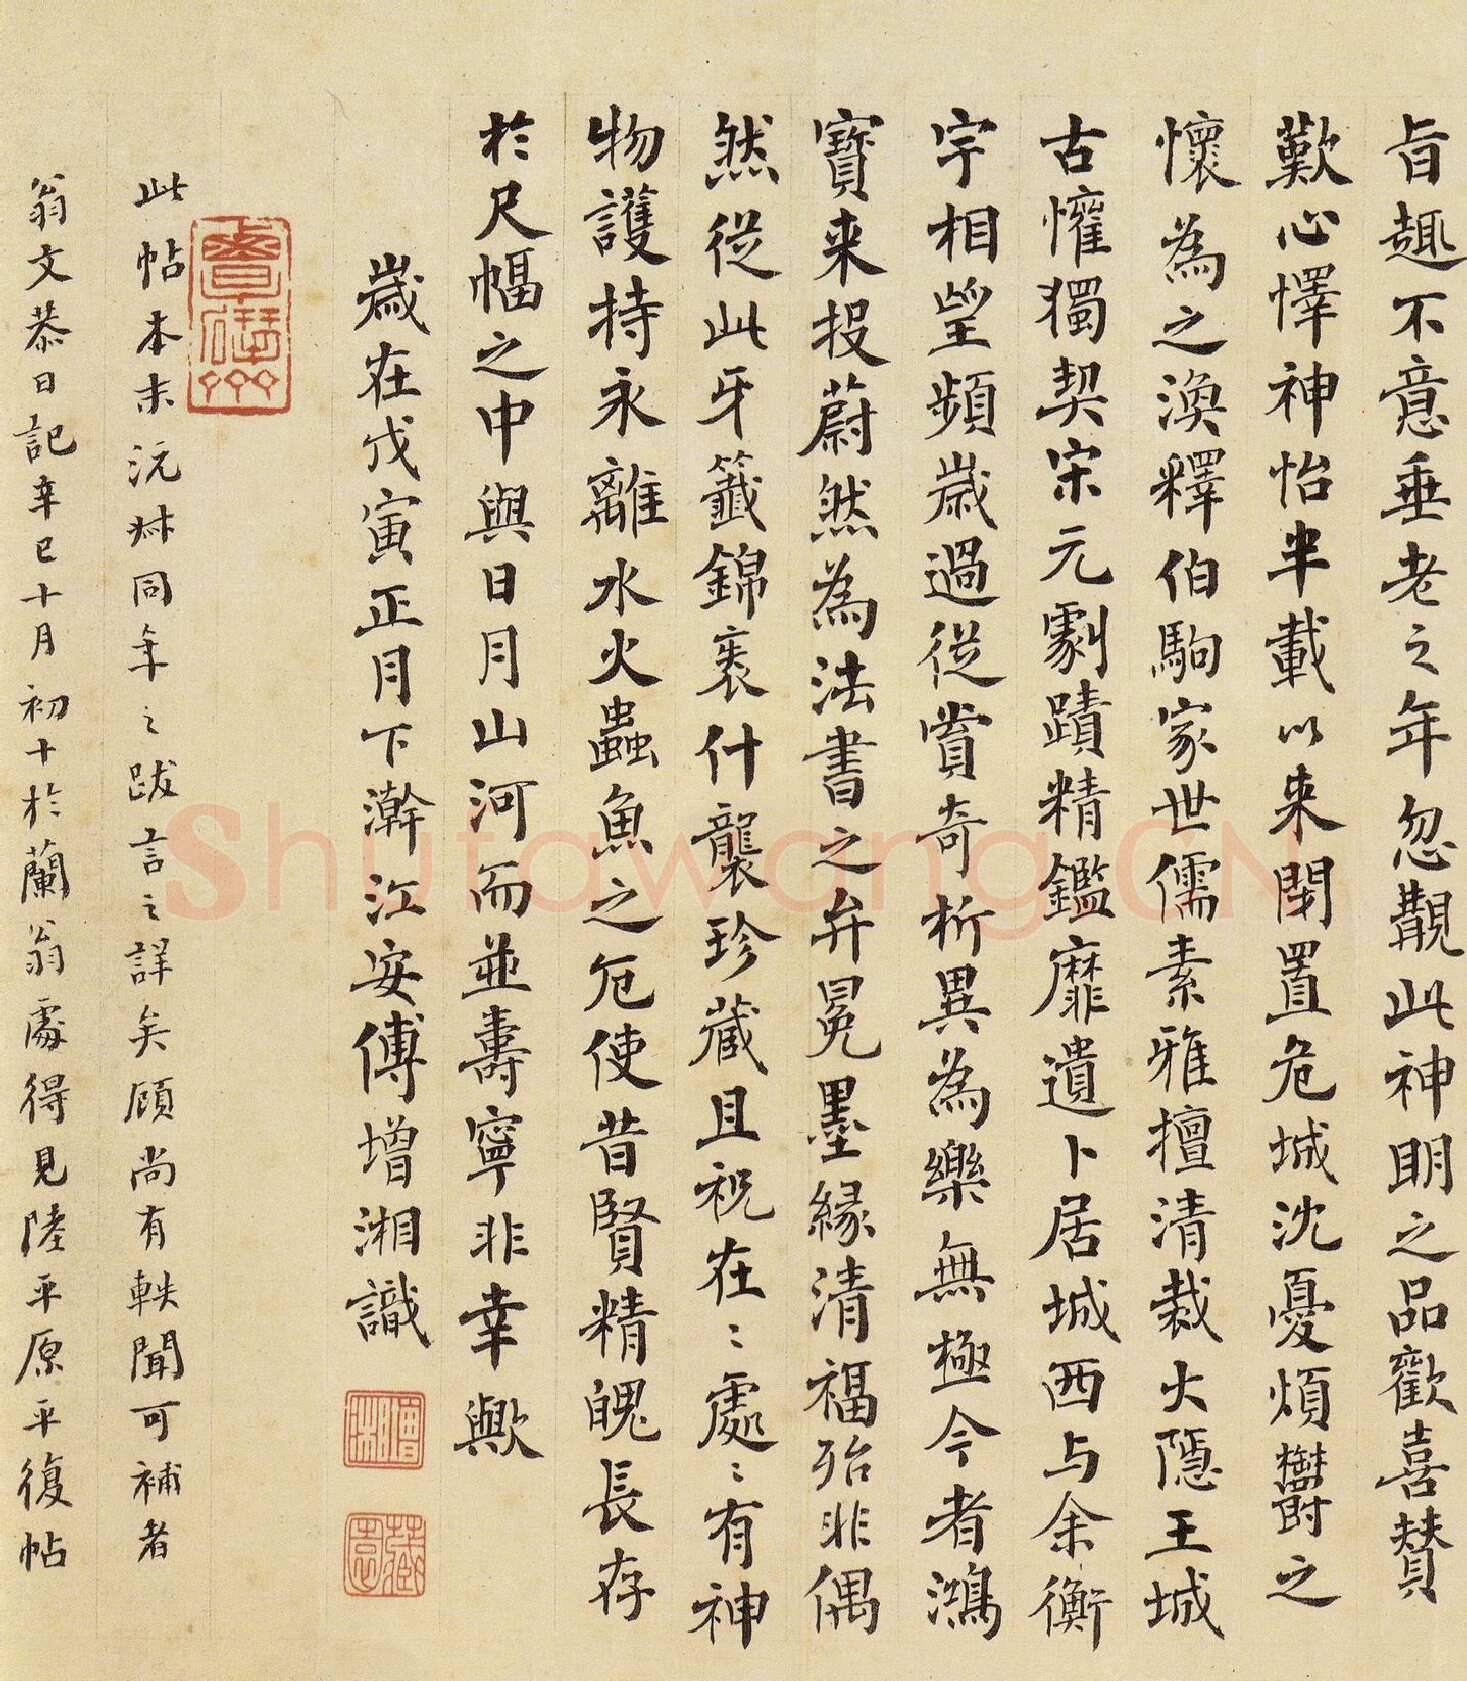 旨趣不意垂老之年忽覩此神明之品歡喜贊
歎心懌神怡半載以来閉置危城沈憂煩鬱之
懷為之渙釋伯駒家世儒素雅擅清裁大隱王城
古懽獨契宋元劇蹟精鑑靡遺卜居城西与余衡
宇相望頻歲過從賞奇析異為樂無極今者鴻
寶来投蔚然為法書之弁冕墨緣清福殆非偶
然從此牙籤錦裹什襲珍藏且祝在:處:有神
物護持永離水火蟲魚之厄使昔賢精魄長存
於尺幅之中與日月山河而並壽寧非幸歟
歲在戊寅正月下澣江安傅增湘識
增湘
藏園
此帖本末沅叔同年之跋言之詳矣顧尚有軼聞可補者
翁文恭日記辛巳十月初十於蘭翁處得見陸平原平復帖
Shufawang.CN